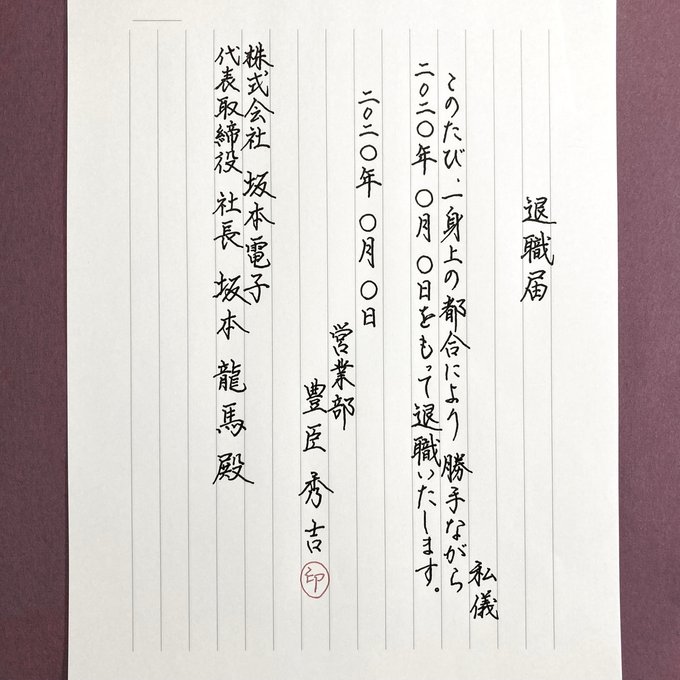 退職届
私儀
このたび、一身上の都合により勝手ながら
二〇二〇年 〇月 〇日をもって退職いたします。
二〇二〇年 〇月 〇日
営業部
豊臣 秀吉 印
株式会社 坂本電子
代表取締役 社長 坂本 龍馬 殿